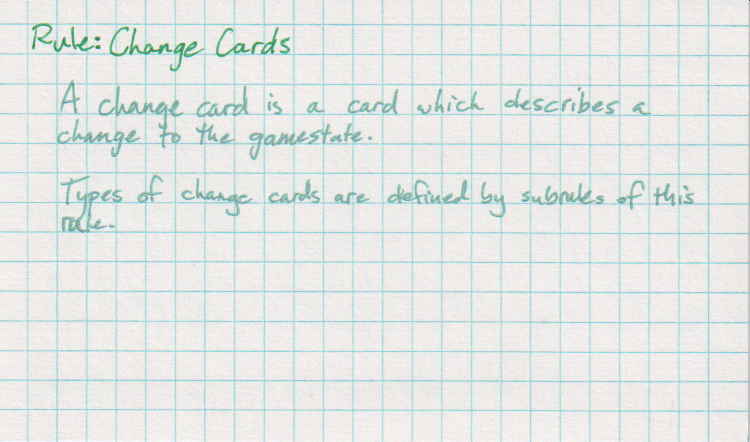 Rule: Change Cards
A change card is a card which describes a
change to the gamestate.
Types of change cards are defined by subrules of this
rule.